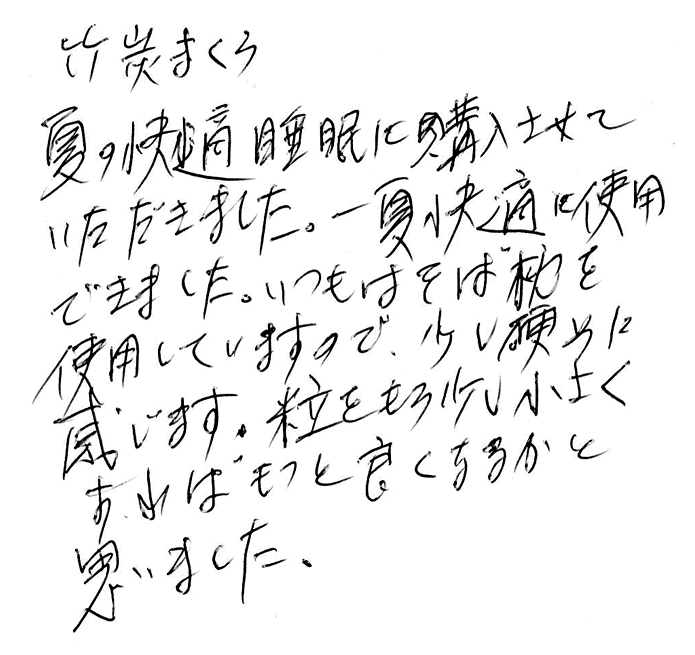 竹炭まくら
夏の快適睡眠に購入させて
いただきました。一夏快適に使用
できました。いつもはそば枕を
使用していますので、少し硬めに
感じます。粒をもう少し小さく
すればもっと良くなるかと
思いました。